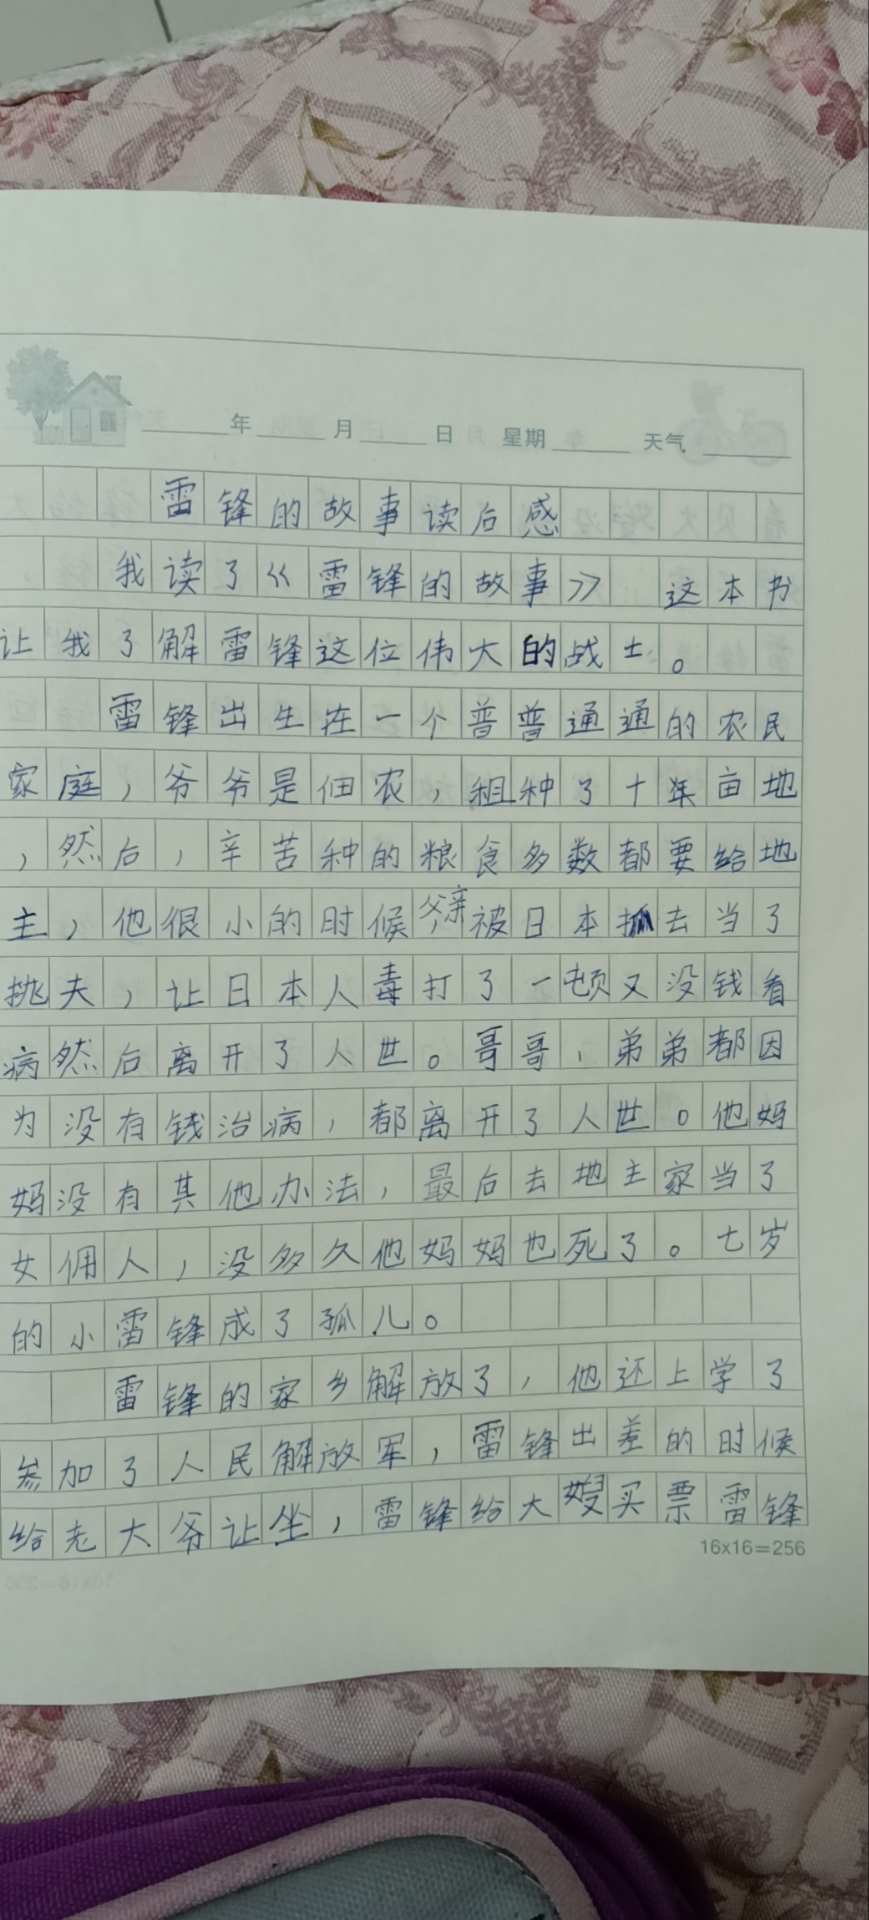 年 月 日 星期 天气
雷锋的故事读后感
我读了《雷锋的故事》 这本书
让我了解雷锋这位伟大的战士。
雷锋出生在一个普普通通的农民
家庭，爷爷是佃农，租种了十年亩地
，然后，辛苦种的粮食多数都要给地
主，他很小的时候父亲被日本抓去当了
挑夫，让日本人毒打了一顿又没钱看
病然后离开了人世。哥哥，弟弟都因
为没有钱治病，都离开了人世。他妈
妈没有其他办法，最后去地主家当了
女佣人，没多久他妈妈也死了。七岁
的小雷锋成了孤儿。
雷锋的家乡解放了，他还上学了
参加了人民解放军，雷锋出差的时候
给老大爷让坐，雷锋给大嫂买票雷锋
16x16=256